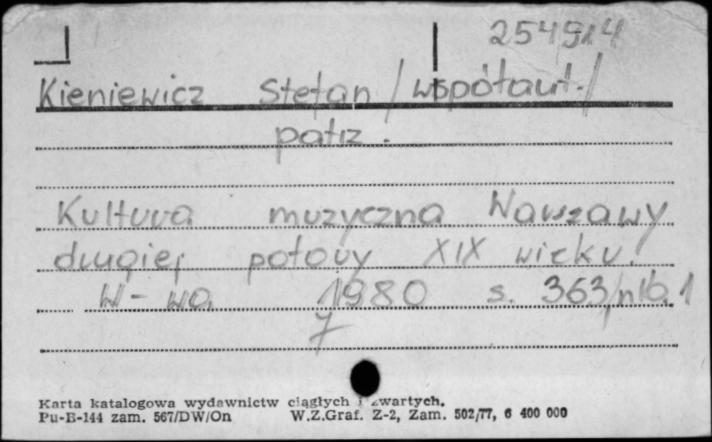 254914
Kieniewicz Stefan /współaut./
patrz.
Kultura muzyczna Warszawy
drugiej połowy XIX wieku.
W-wa 1980 s. 363, nlb. 1
7
Karta katalogowa wydawnictw ciągłych i zwartych.
Pu-B-144 zam. 567/DW/On W.Z.Graf. Z-2, Zam. 502/77, 6 400 000